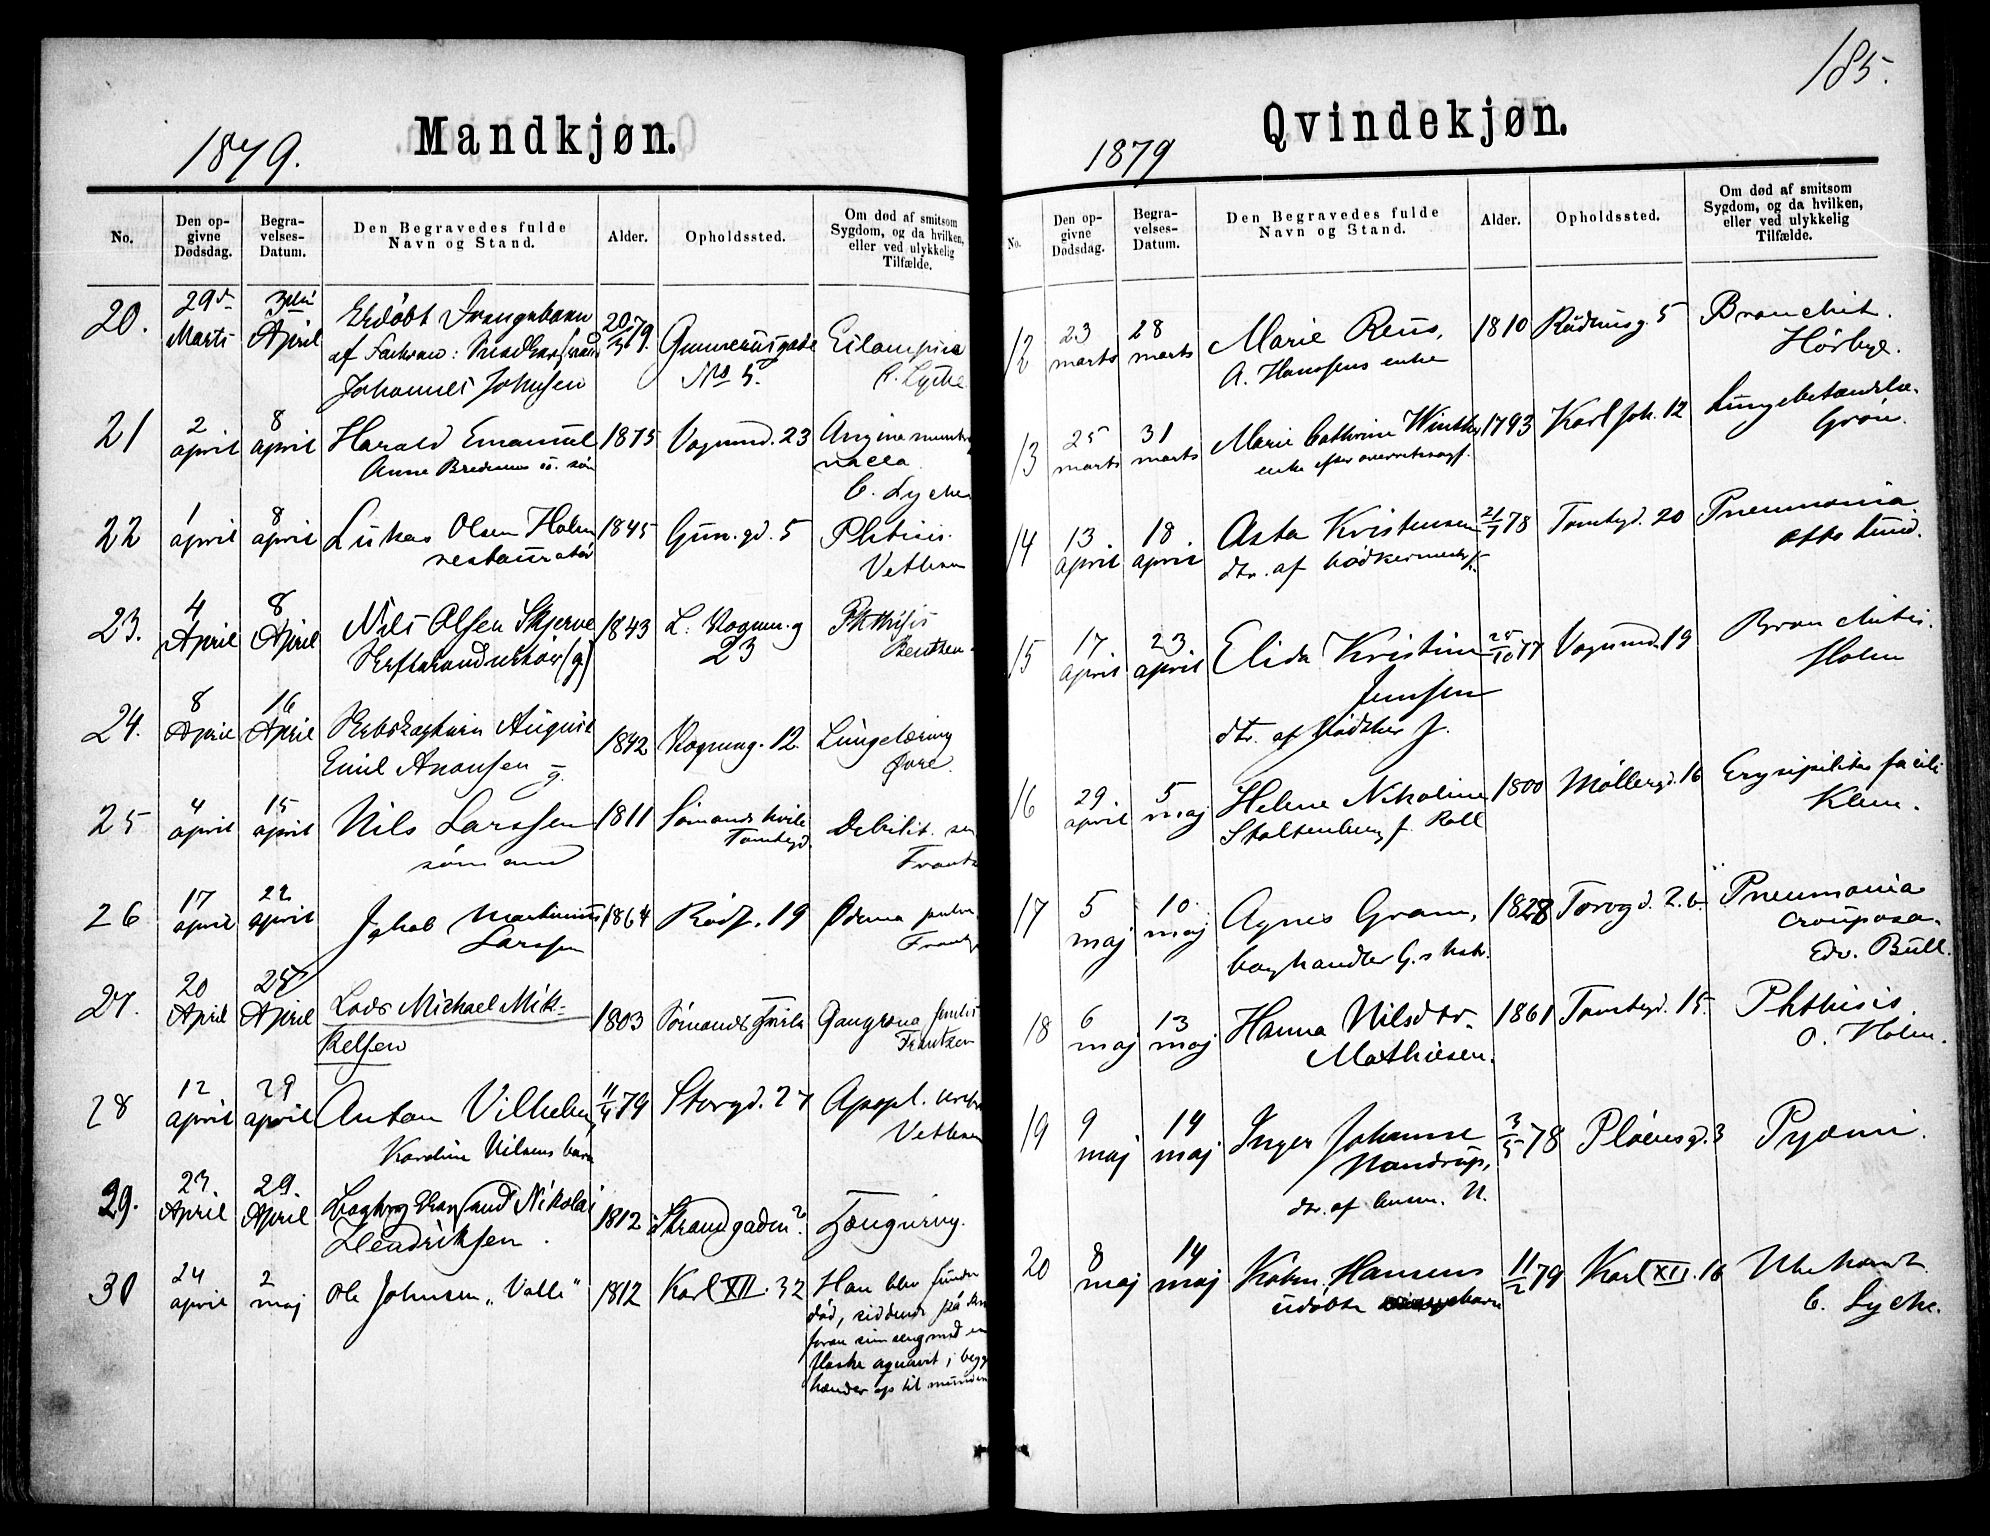 185.
1879.
Mandkjøn.
No.
Den op-
givne
Dødsdag.
Begra-
velses-
Datum.
Den Begravedes fulde
Navn og Stand.
Alder.
Opholdssted.
Om død af smitsom
Sygdom, og da hvilken,
eller ved ulykkelig
Tilfælde.
20.
29de
Marts
3die
April
af
Johannes Johnsen
20/3 79.
Gunnerusgade
No 5.
C. Lyche
21
2
april
8
april
Harald Emanuel
Anne søn
1875
Vognmd. 23
Angina
C. Lyche
22
1
april
8
april
Lukas Olsen Holm
restauratør
1845
Gun. gd. 5
Phtisis.
Vetlesen
23.
4
April
8
April
Nils Olsen Skjerve
(g)
1843
L. Vognm. g
23
Phthisis
Bentsen
24.
8
April
16
April
August
Emil Aronsen g.
1842
Vognmg. 12.
Lungetæring
Øvre.
25
4
april
15
april
Nils Larssen
sømand
1811
Sømands hvile
Tomtegd.
Debilit. sen
Frantz
26
17
april
22
april
Jakob Martinius
Larssen
1864
Rødf. 19
Ødema pulm
Frantz
27.
20
April
25
April
Lods Michael Mik-
kelsen
1803
Gangræna senilis
Frantzen
28
12
april
29
april
Anton Vilhelm
Karoline Nilsens barn
11/4 79
Storgd. 27
Apopl.
Vetlesen
29.
23.
April
29.
April
Nikolai
Hendriksen.
1812
Strandgaden
Tæuring.
30
24
april
2
maj
Ole Johnsen „Valle"
1812
Karl XII. 32
Han blev funden
død, siddende på
foran sin seng med en
flaske aquavit i begge
hænder op til munden
1879
Qvindekjøn.
No.
Den op-
givne
Dødsdag.
Begra-
velses-
Datum.
Den Begravedes fulde
Navn og Stand.
Alder.
Opholdssted.
Om død af smitsom
Sygdom, og da hvilken,
eller ved ulykkelig
Tilfælde.
12
23
marts
28
marts
Marie
A. Hanssens enke
1810
5
Bronchit.
Hørbye.
13
25
marts
31
marts
Marie Cathrine Winther
enke efter overretssagf.
1793
Karl Joh. 12
Lungebetændelse
Grøn.
14
13.
april
18.
april
Asta Kristensen
dtr. af bødkermester
21/7 78
Tomtegd. 20
Pneumonia
Otto Lund.
15
17
april
23
april
Elida Kristine
Jenssen
dtr. af bødker J.
25/10 77
Vognmd. 19
Bronchitis.
Holm
16
29
april
5
maj
Helene Nikoline
Stoltenberg f. Roll
1800
Møllergd. 16
Klem.
17
5
maj
10
maj
Agnes Gram,
boghandler G.s hstr.
1828
Torvgd. 2. b.
Pneumonia
crouposa.
Edv. Bull.
18
6
maj
13
maj
Hanna Nilsdtr.
Mathiesen.
1861
Tomtegd. 15.
Phthisis
O. Holm.
19
9
maj
14
maj
Inger Johanne
Nandrup,
dtr. af N.
3/5 78
Pløensgd. 3
Pyæmi.
20
8
maj
14
maj
Kobm. Hansens
udøbte
11/2 79
Karl XII. 16
Ubekendt.
C. Lyche.